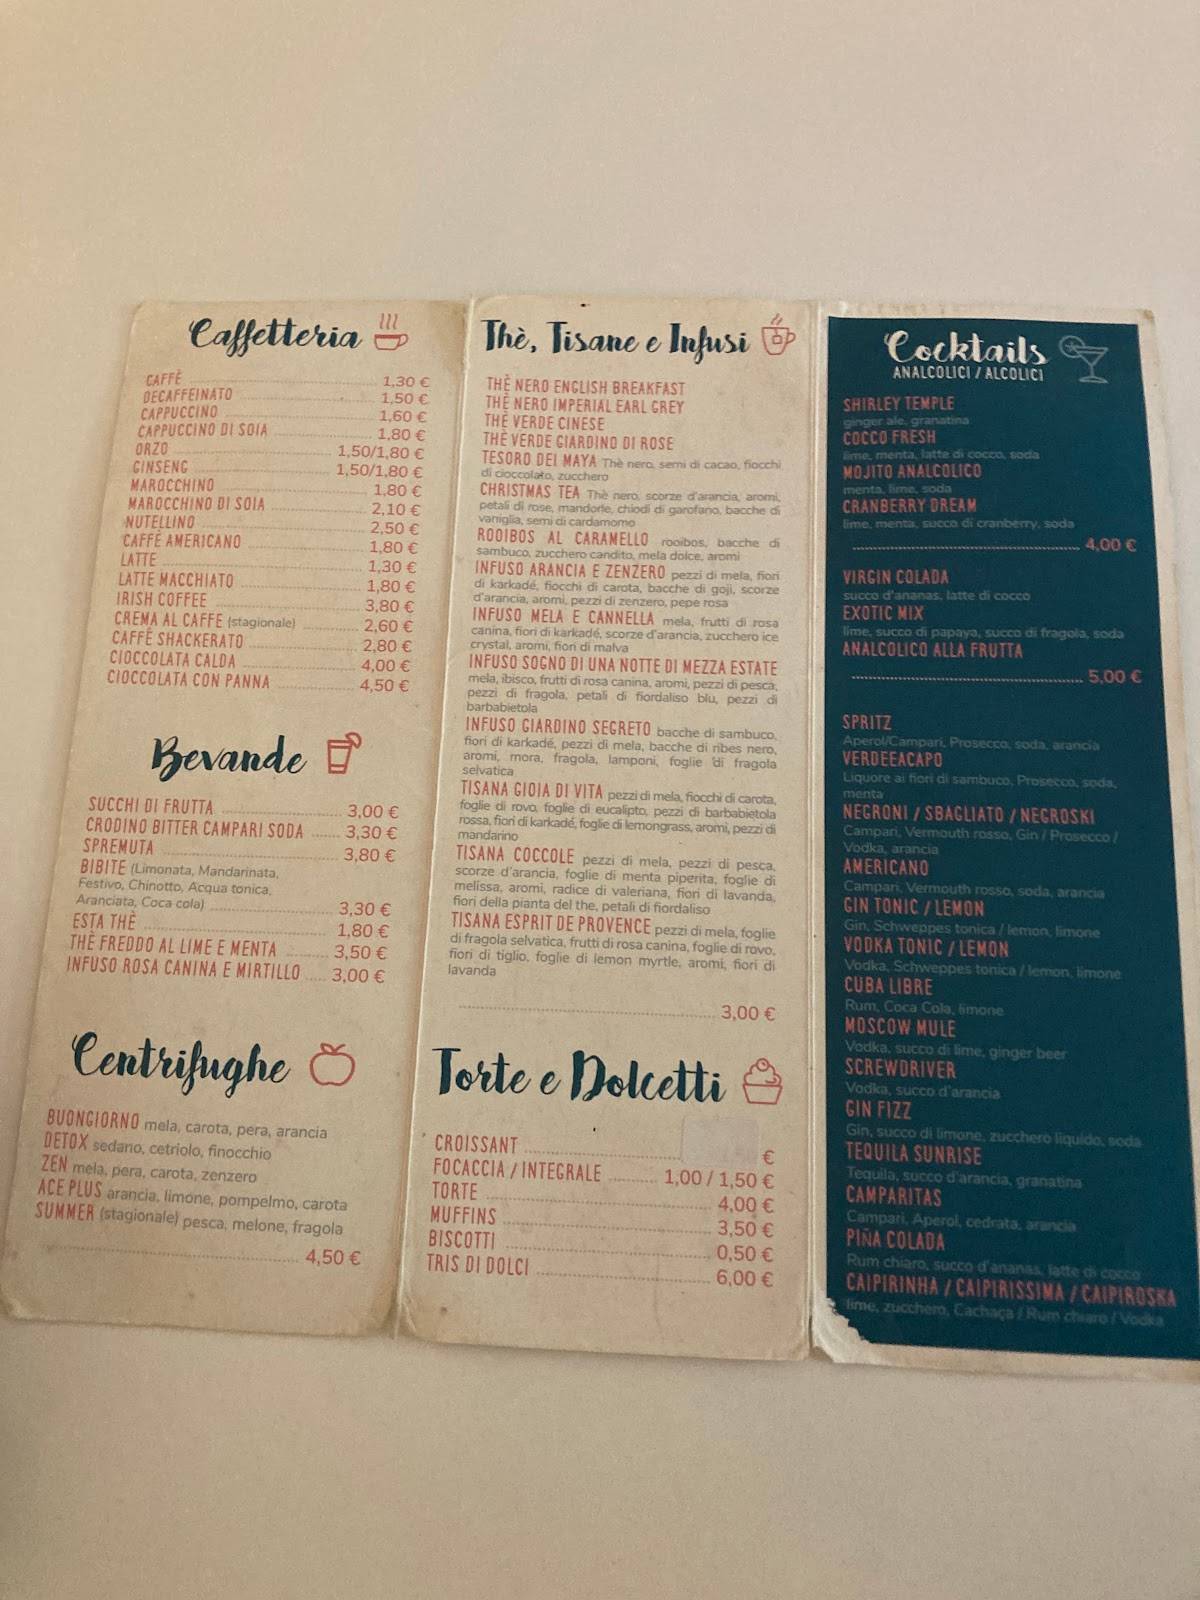 Caffetteria
CAFFÈ 1,30 €
DECAFFEINATO 1,50 €
CAPPUCCINO 1,60 €
CAPPUCCINO DI SOIA 1,80 €
ORZO 1,50/1,80 €
GINSENG 1,50/1,80 €
MAROCCHINO 1,80 €
MAROCCHINO DI SOIA 2,10 €
NUTELLINO 2,50 €
CAFFÈ AMERICANO 1,80 €
LATTE 1,30 €
LATTE MACCHIATO 1,80 €
IRISH COFFEE 3,80 €
CREMA AL CAFFE (stagionale) 2,60 €
CAFFÈ SHACKERATO 2,80 €
CIOCCOLATA CALDA 4,00 €
CIOCCOLATA CON PANNA 4,50 €
Bevande
SUCCHI DI FRUTTA 3,00 €
CRODINO BITTER CAMPARI SODA 3,30 €
SPREMUTA 3,80 €
BIBITE (Limonata, Mandarinata,
Festivo, Chinotto, Acqua tonica,
Aranciata, Coca cola) 3,30 €
ESTA THÈ 1,80 €
THÈ FREDDO AL LIME E MENTA 3,50 €
INFUSO ROSA CANINA E MIRTILLO 3,00 €
Centrifughe
BUONGIORNO mela, carota, pera, arancia
DETOX sedano, cetriolo, finocchio
ZEN mela, pera, carota, zenzero
ACE PLUS arancia, limone, pompelmo, carota
SUMMER (stagionale) pesca, melone, fragola
4,50 €
Thè, Tisane e Infusi
THÈ NERO ENGLISH BREAKFAST
THÈ NERO IMPERIAL EARL GREY
THÈ VERDE CINESE
THÈ VERDE GIARDINO DI ROSE
TESORO DEI MAYA Thè nero, semi di cacao, fiocchi
di cioccolato, zucchero
CHRISTMAS TEA Thè nero, scorze d'arancia, aromi,
petali di rose, mandorle, chiodi di garofano, bacche di
vaniglia, semi di cardamomo
ROOIBOS AL CARAMELLO rooibos, bacche di
sambuco, zucchero candito, mela dolce, aromi
INFUSO ARANCIA E ZENZERO pezzi di mela, fiori
di karkadé, fiocchi di carota, bacche di goji, scorze
d'arancia, aromi, pezzi di zenzero, pepe rosa
INFUSO MELA E CANNELLA mela, frutti di rosa
canina, fiori di karkadé, scorze d'arancia, zucchero ice
crystal, aromi, fiori di malva
INFUSO SOGNO DI UNA NOTTE DI MEZZA ESTATE
mela, ibisco, frutti di rosa canina, aromi, pezzi di pesca,
pezzi di fragola, petali di fiordaliso blu, pezzi di
barbabietola
INFUSO GIARDINO SEGRETO bacche di sambuco,
fiori di karkadé, pezzi di mela, bacche di ribes nero,
aromi, mora, fragola, lamponi, foglie di fragola
selvatica
TISANA GIOIA DI VITA pezzi di mela, fiocchi di carota,
foglie di rovo, foglie di eucalipto, pezzi di barbabietola
rossa, fiori di karkadé, foglie di lemongrass, aromi, pezzi di
mandarino
TISANA COCCOLE pezzi di mela, pezzi di pesca,
scorze d'arancia, foglie di menta piperita, foglie di
melissa, aromi, radice di valeriana, fiori di lavanda,
fiori della pianta del the, petali di fiordaliso
TISANA ESPRIT DE PROVENCE pezzi di mela, foglie
di fragola selvatica, frutti di rosa canina, foglie di rovo,
fiori di tiglio, foglie di lemon myrtle, aromi, fiori di
lavanda
3,00 €
Torte e Dolcetti
CROISSANT €
FOCACCIA / INTEGRALE 1,00 / 1,50 €
TORTE 4,00 €
MUFFINS 3,50 €
BISCOTTI 0,50 €
TRIS DI DOLCI 6,00 €
Cocktails
ANALCOLICI / ALCOLICI
SHIRLEY TEMPLE
ginger ale, granatina
COCCO FRESH
lime, menta, latte di cocco, soda
MOJITO ANALCOLICO
menta, lime, soda
CRANBERRY DREAM
lime, menta, succo di cranberry, soda
4,00 €
VIRGIN COLADA
succo d'ananas, latte di cocco
EXOTIC MIX
lime, succo di papaya, succo di fragola, soda
ANALCOLICO ALLA FRUTTA
5,00 €
SPRITZ
Aperol/Campari, Prosecco, soda, arancia
VERDEEACAPO
Liquore ai fiori di sambuco, Prosecco, soda,
menta
NEGRONI / SBAGLIATO / NEGROSKI
Campari, Vermouth rosso, Gin / Prosecco /
Vodka, arancia
AMERICANO
Campari, Vermouth rosso, soda, arancia
GIN TONIC / LEMON
Gin, Schweppes tonica / lemon, limone
VODKA TONIC / LEMON
Vodka, Schweppes tonica / lemon, limone
CUBA LIBRE
Rum, Coca Cola, limone
MOSCOW MULE
Vodka, succo di lime, ginger beer
SCREWDRIVER
Vodka, succo d'arancia
GIN FIZZ
Gin, succo di limone, zucchero liquido, soda
TEQUILA SUNRISE
Tequila, succo d'arancia, granatina
CAMPARITAS
Campari, Aperol, cedrata, arancia
PIÑA COLADA
Rum chiaro, succo d'ananas, latte di cocco
CAIPIRINHA / CAIPIRISSIMA / CAIPIROSKA
lime, zucchero, Cachaça / Rum chiaro / Vodka